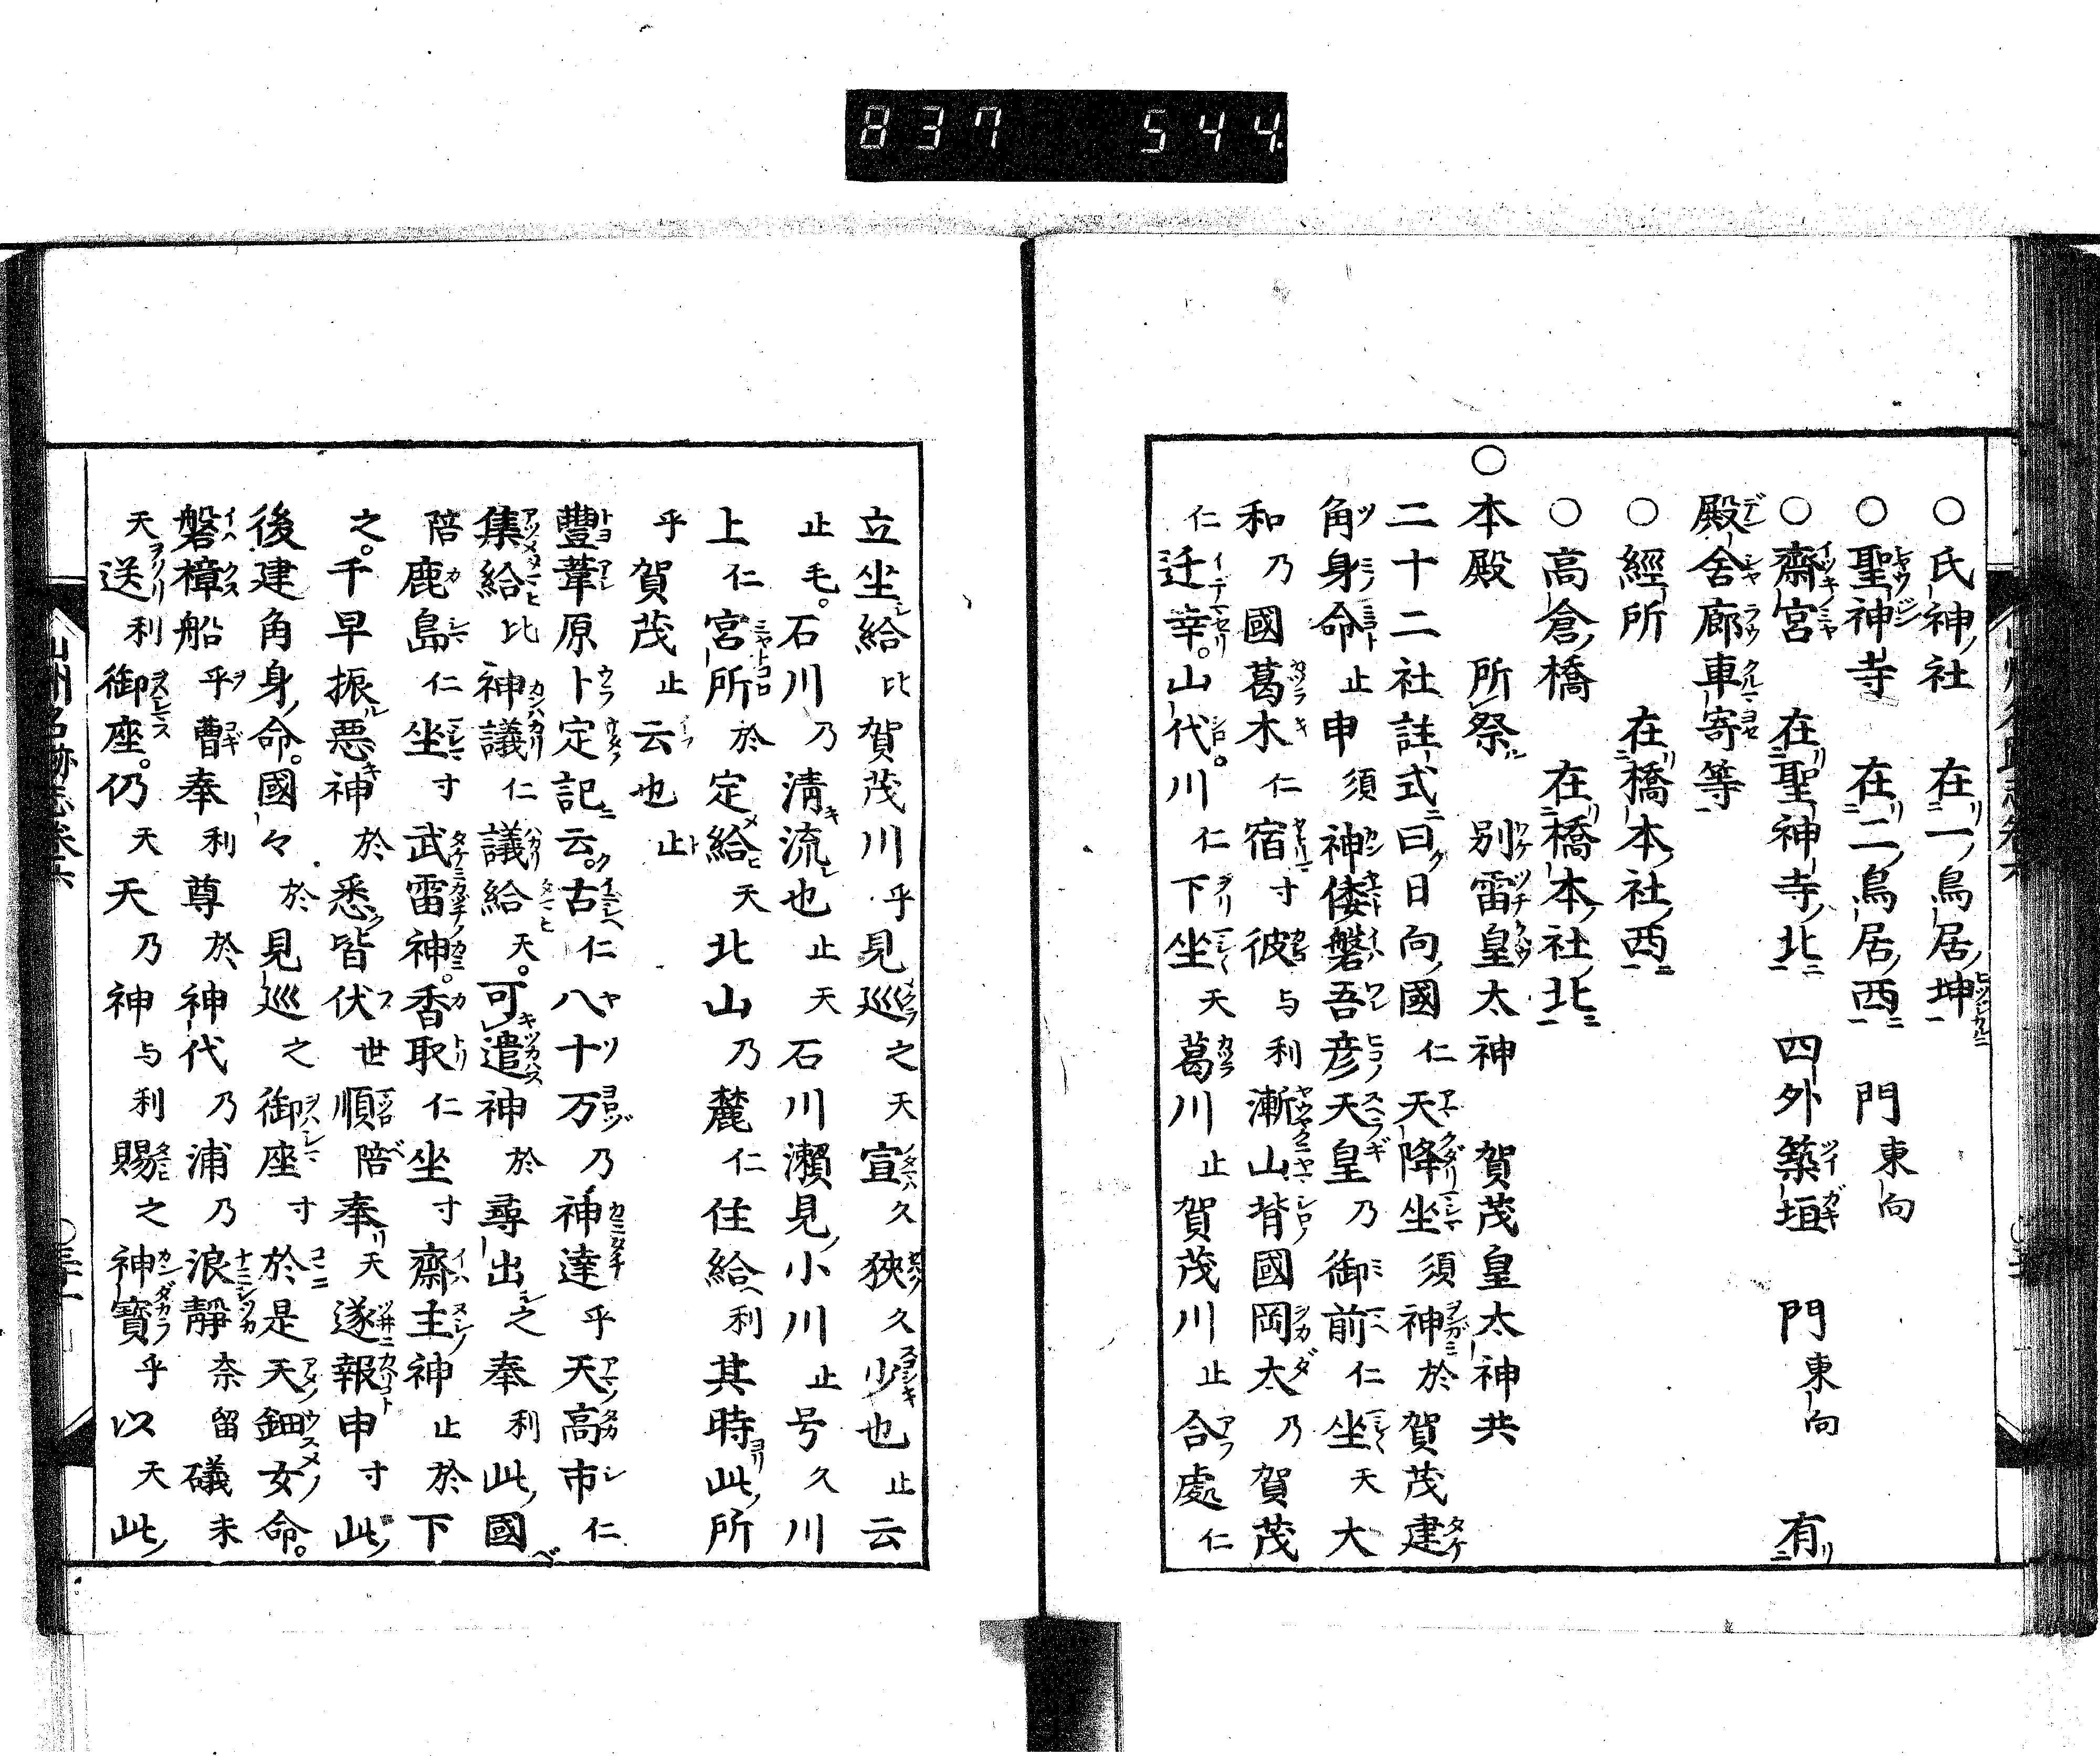 837 544
〇氏神社 在一鳥居坤
〇聖神寺 在二鳥居西 門東向
〇齋宮 在聖神寺北 四外築垣 門東向 有
殿舎廊車寄等
〇經所 在橋本社西
〇高倉橋 在橋本社北
〇本殿 所祭 別雷皇太神 賀茂皇太神共
二十二社註式曰日向國仁天降坐須神於賀茂建
角身命止申須神倭磐吾彦天皇乃御前仁坐天大
和乃國葛木仁宿寸彼与利漸山背國岡太乃賀茂
仁迁幸。山代川仁下坐天葛川止賀茂川止合處仁
立坐給比賀茂川乎見巡之天宣久狹久少也止云
止毛。石川乃淸流也止天石川瀨見小川止号久川
上仁宮所於定給天北山乃麓仁住給利其時此所
乎賀茂止云也止
豐葦原卜定記云。古仁八十万乃神達乎天高市仁
集給比神議仁議給天。可遣神於尋出之奉利此國
陪鹿島仁坐寸武雷神。香取仁坐寸齋主神止於下
之。千早振惡神於悉皆伏世順陪奉天遂報申寸此
後建角身命。國々於見巡之御座寸於是天鈿女命。
磐樟船乎曹奉利尊於神代乃浦乃浪靜奈留礒未
天送利御座。仍天天乃神与利賜之神寶乎以天此
山州名跡志卷六